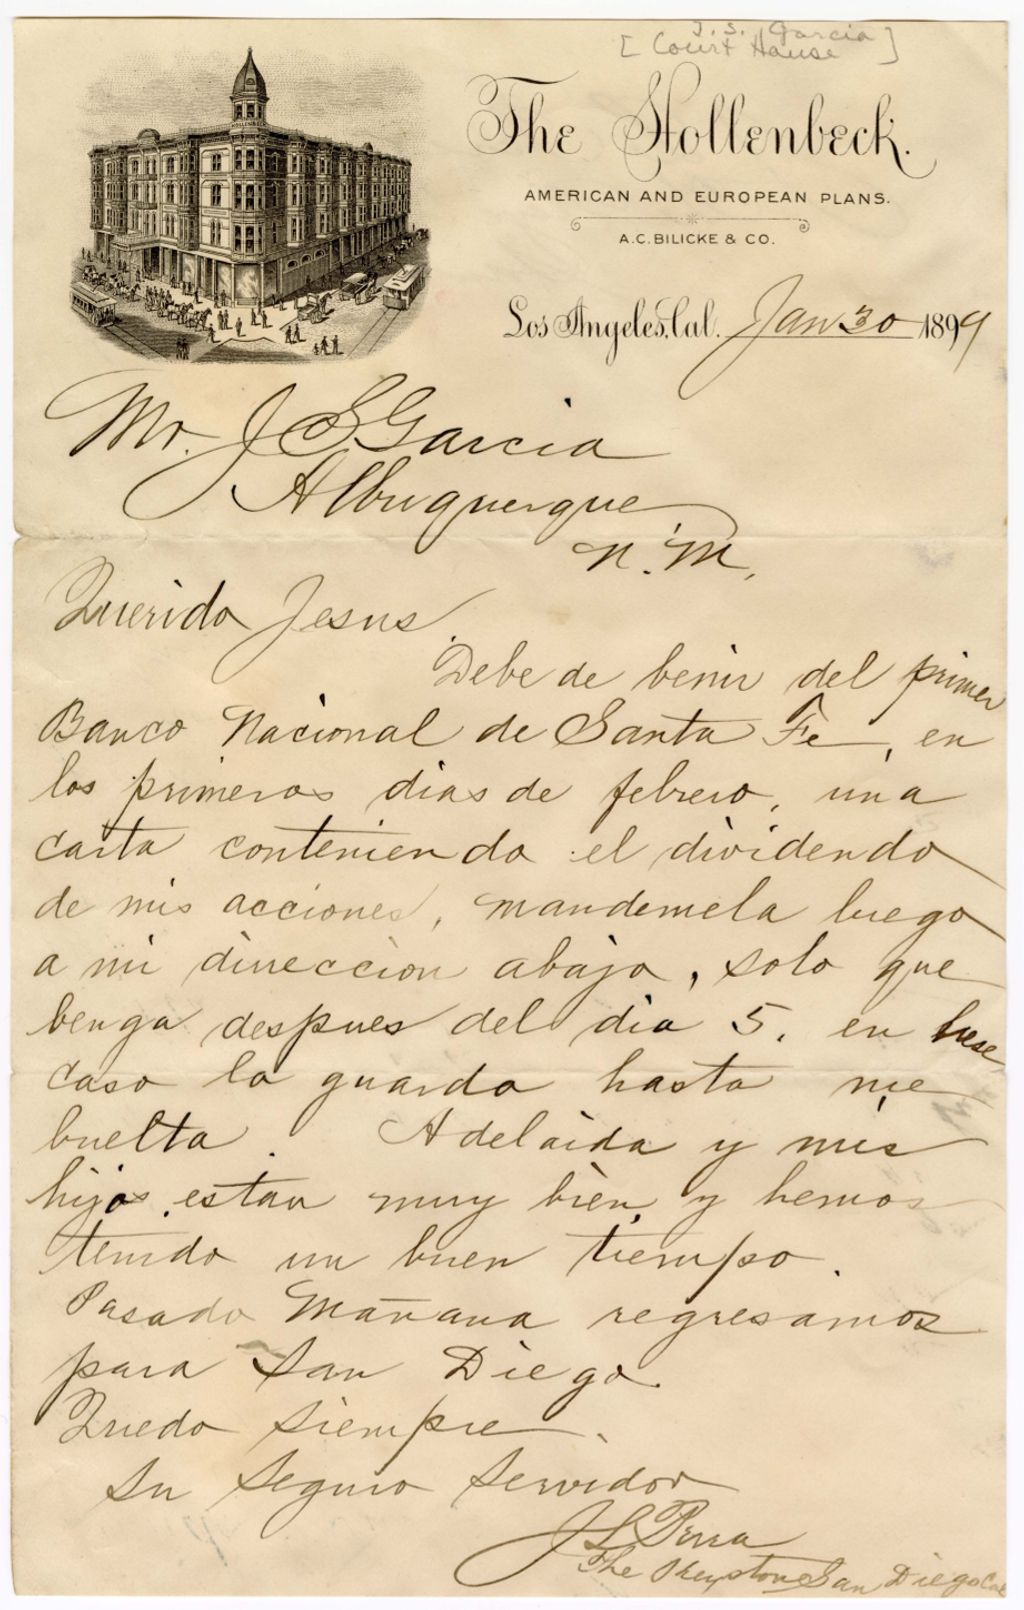 J. S. Garcia
[Court House]
The Hollenbeck.
AMERICAN AND EUROPEAN PLANS.
A.C. BILICKE & CO.
Los Angeles, Cal. Jan 30 1899
HOLLENBECK
Mr. J S Garcia
Albuquerque
N. M.
Querido Jesus.
Debe de benir del primer
Banco Nacional de Santa Fe, en
los primeros dias de febrero, una
carta conteniendo el dividendo
de mis acciones, mandemela luego
a mi direccion abajo, solo que
benga despues del dia 5, en
caso la guarda hasta mi
buelta. Adelaida y mis
hijos estan muy bien, y hemos
tenido un buen tiempo.
Pasado Mañana regresamos
para San Diego.
Quedo siempre.
Su Seguro Servidor
J L Perea
The Keystone San Diego Cal